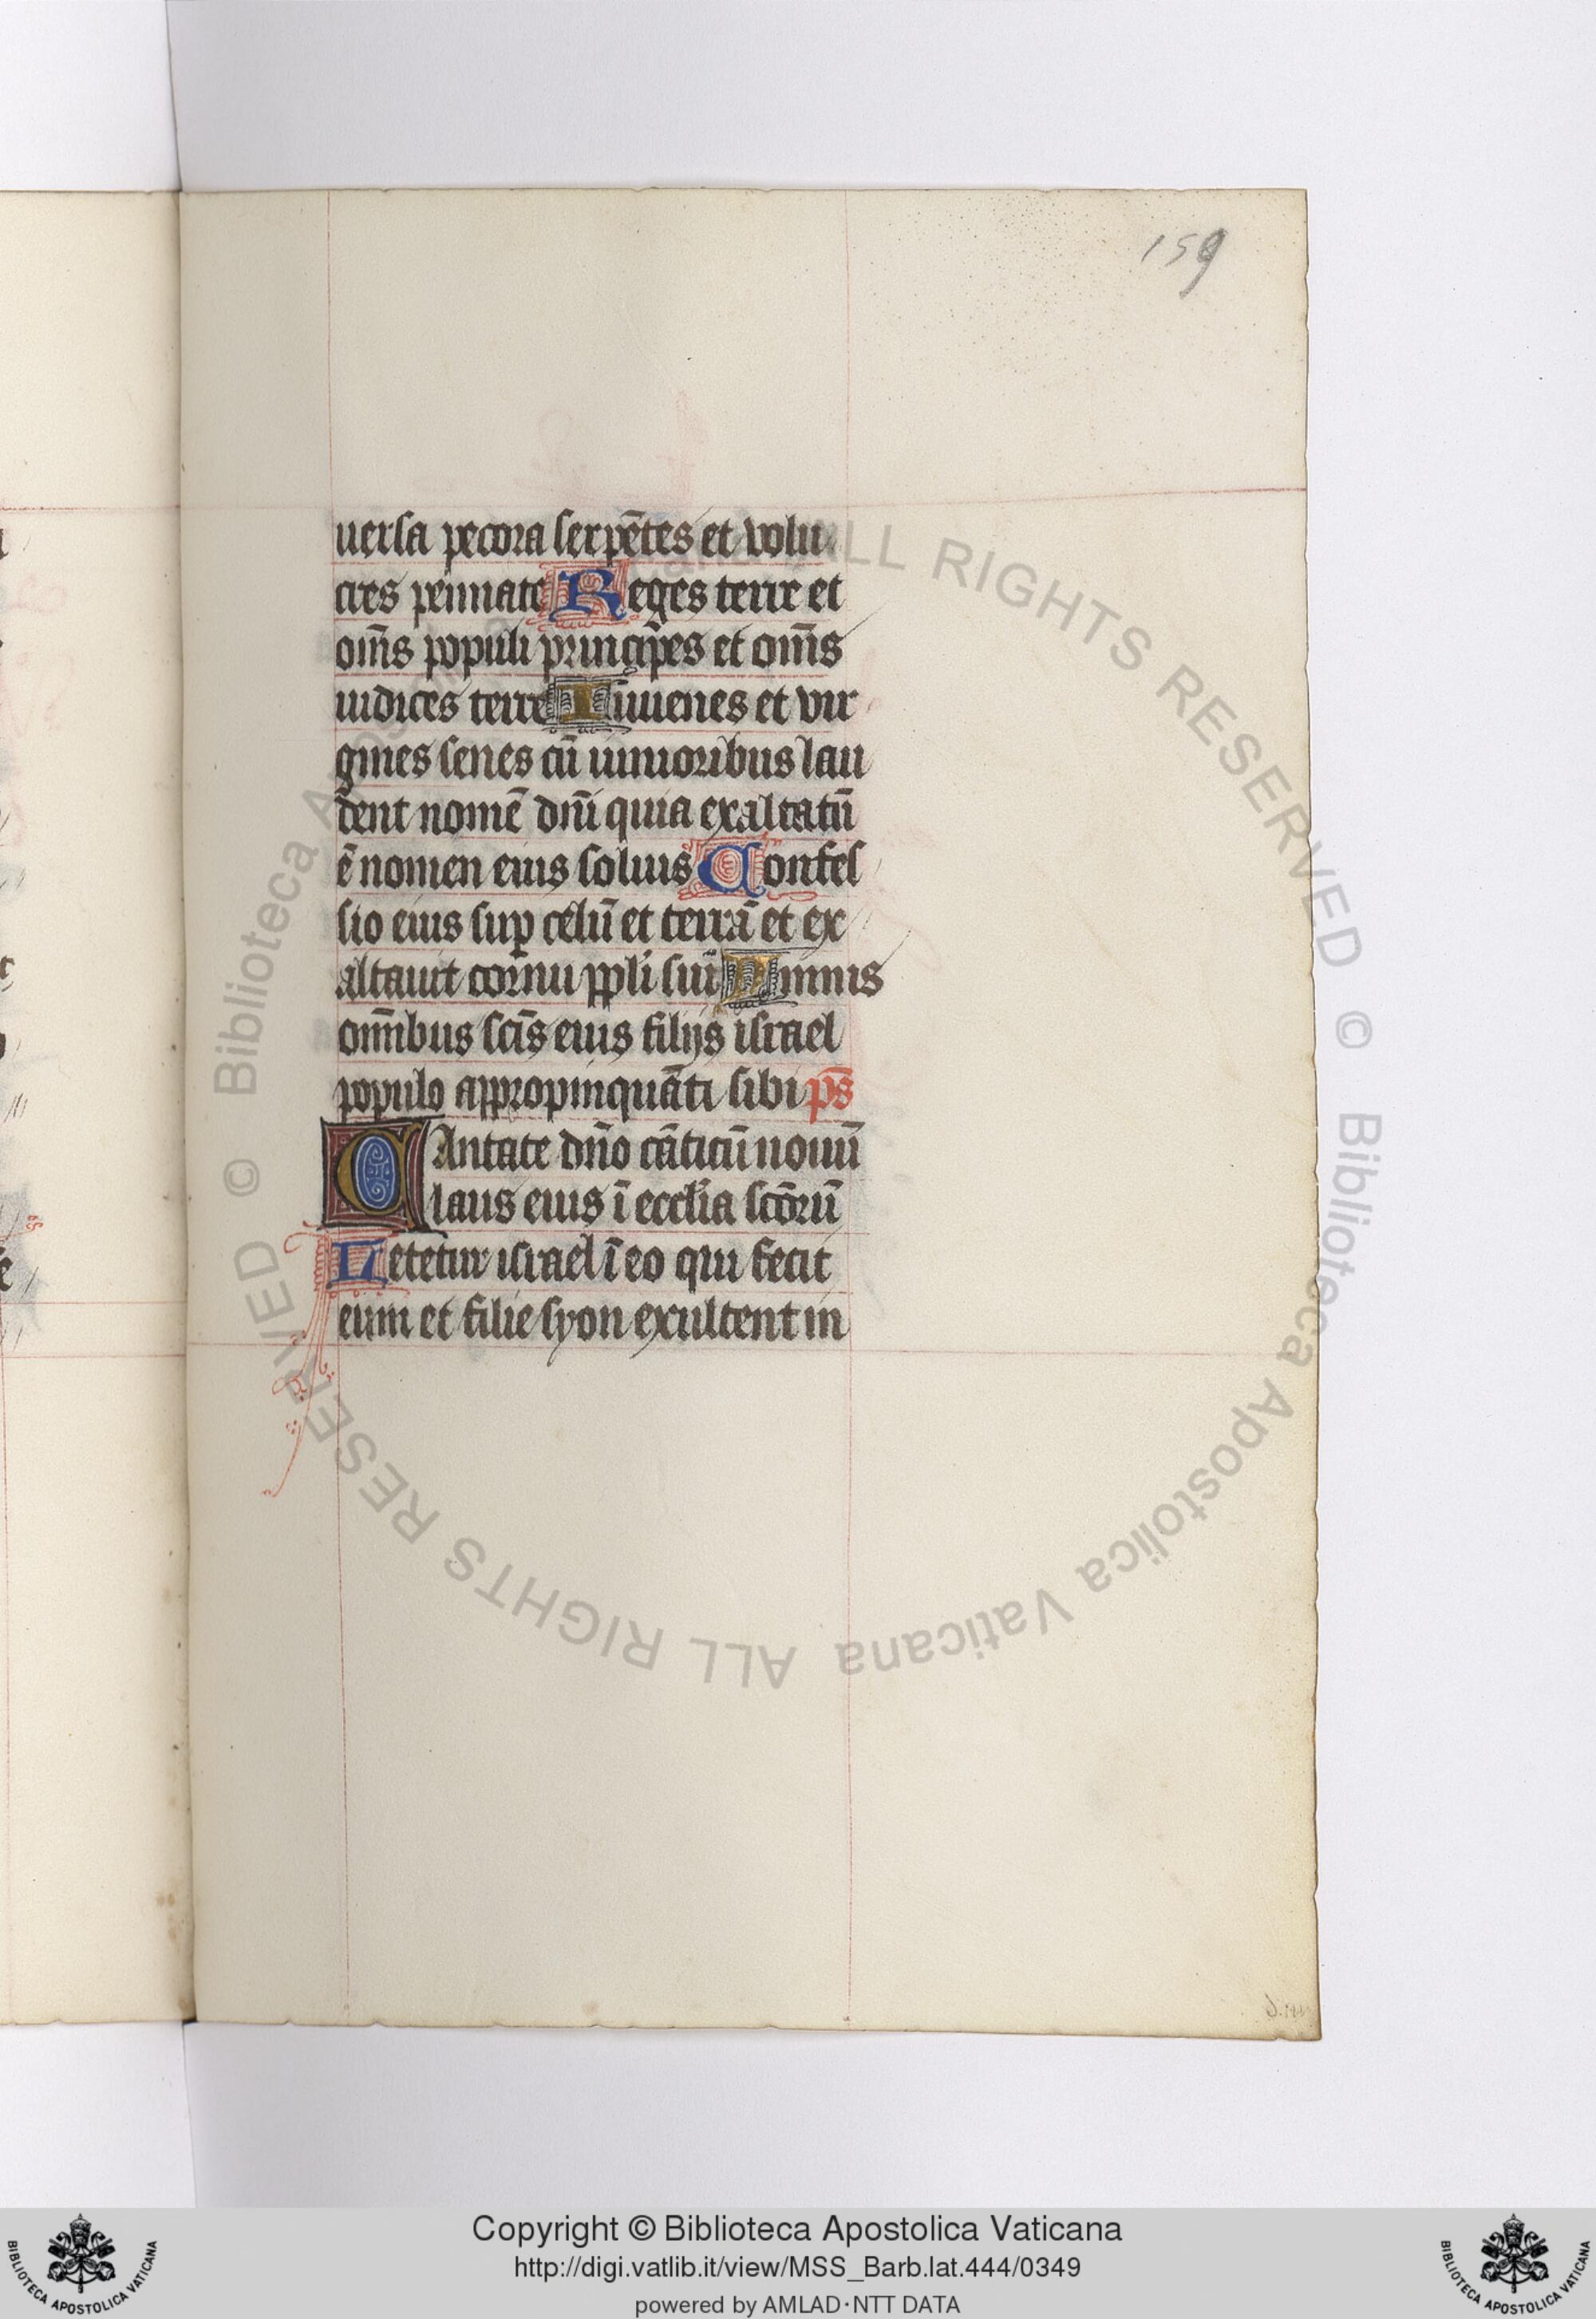 159
uersa pecora serpētes et volu
cres pennate Reges terre et
om̄s populi prīcipes et om̄s
iudices terre Iuuenes et vir
gines senes cū iunioribus lau
dent nomē dn̄i quia exaltatū
ē nomen eius solius Confes
sio eius suꝑ celū et terrā et ex
altauit cornu ppli sui Ymnis
om̄ibus scīs eius filijs israel
populo appropinquāti sibi ps̄
CAntate dn̄o cāticū nouū
laus eius ī eccl̄ia scōrū
Letetur israel ī eo qui fecit
eum et filie syon exultent in
© Biblioteca Apostolica Vaticana ALL RIGHTS RESERVED
© Biblioteca Apostolica Vaticana ALL RIGHTS RESERVED
Copyright © Biblioteca Apostolica Vaticana
http://digi.vatlib.it/view/MSS_Barb.lat.444/0349
powered by AMLAD·NTT DATA
BIBLIOTECA APOSTOLICA VATICANA
BIBLIOTECA APOSTOLICA VATICANA